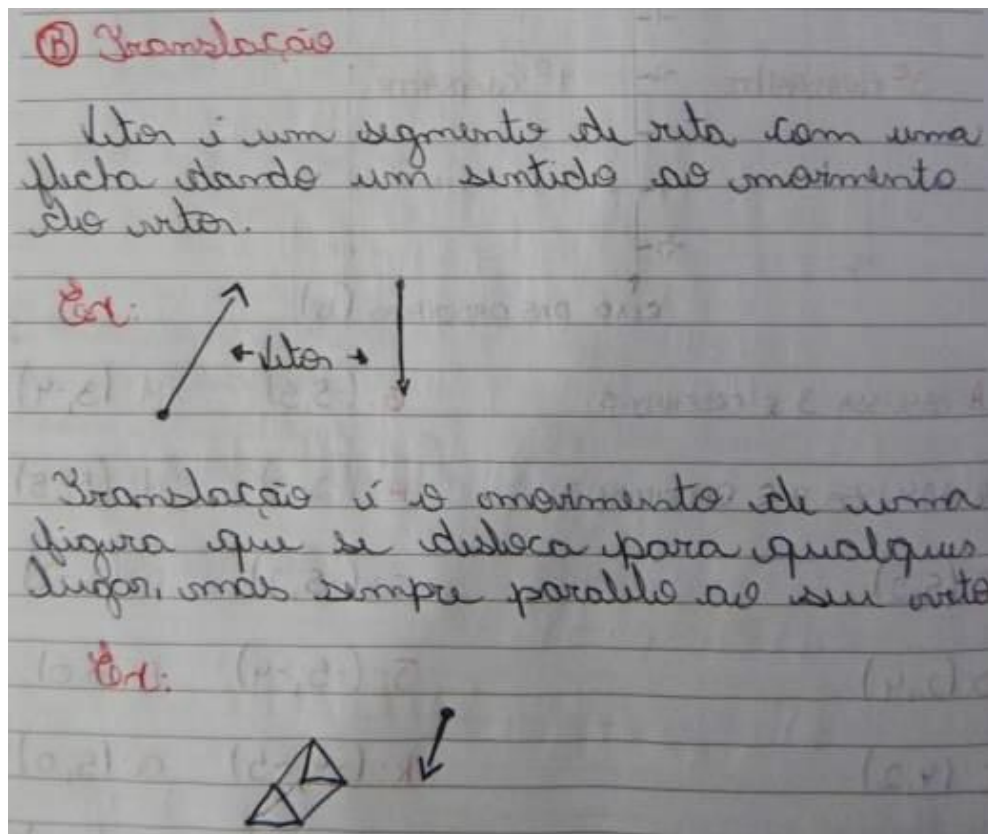 B Translação
Vetor é um segmento de reta com uma
flecha dando um sentido ao movimento
do vetor.
Ex:
Vetor
Translação é o movimento de uma
figura que se desloca para qualquer
lugar, mas sempre paralelo ao seu veto
Ex: